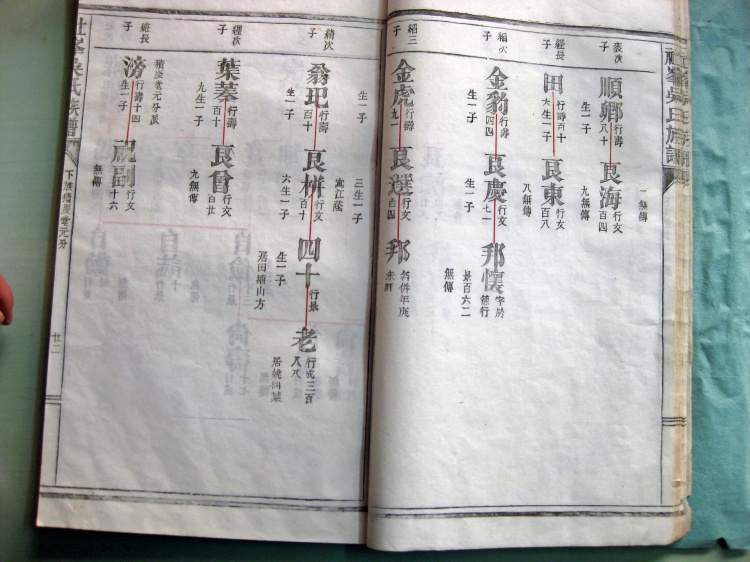 一無傳
表次子
順鄉行壽八十生一子
艮海行文百四九無傳
經長子
田行壽百十六生一子
艮東行文百八八無傳
編次子
金豹行壽四四生一子
艮慶行文七一生一子
邦懷字於德行景百六二無傳
紹三子
金虎行壽九一生一子
艮選行文四
邦名併年庚未詳
生一子
三生一子
寓江蔭
緒次子
翁玘行壽百十生一子
艮栟行文百十六生一子
四十行景生一子居田墩山方
老行成三百八八居
纓次子
葉葊行壽百十九生一子
艮曾行文百廿九無傳
綎長子
積慶電元分派
滂行壽十四生一子
祝副行文十六無傳
吳氏族譜
下族積慶電元分
廿二